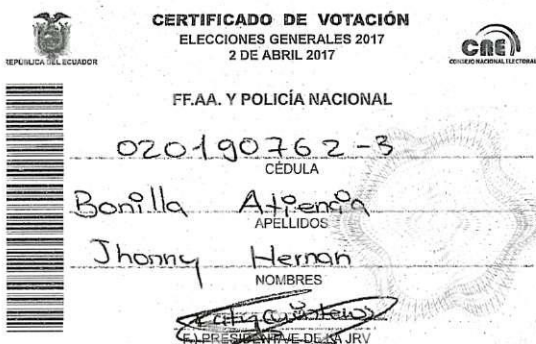 CERTIFICADO DE VOTACIÓN
ELECCIONES GENERALES 2017
2 DE ABRIL 2017
REPÚBLICA DEL ECUADOR
CNE
CONSEJO NACIONAL ELECTORAL
FF.AA. Y POLICÍA NACIONAL
020190762-3
CÉDULA
Bonilla Atiencia
APELLIDOS
Jhonny Hernan
NOMBRES
F.) PRESIDENTA/E DE LA JRV